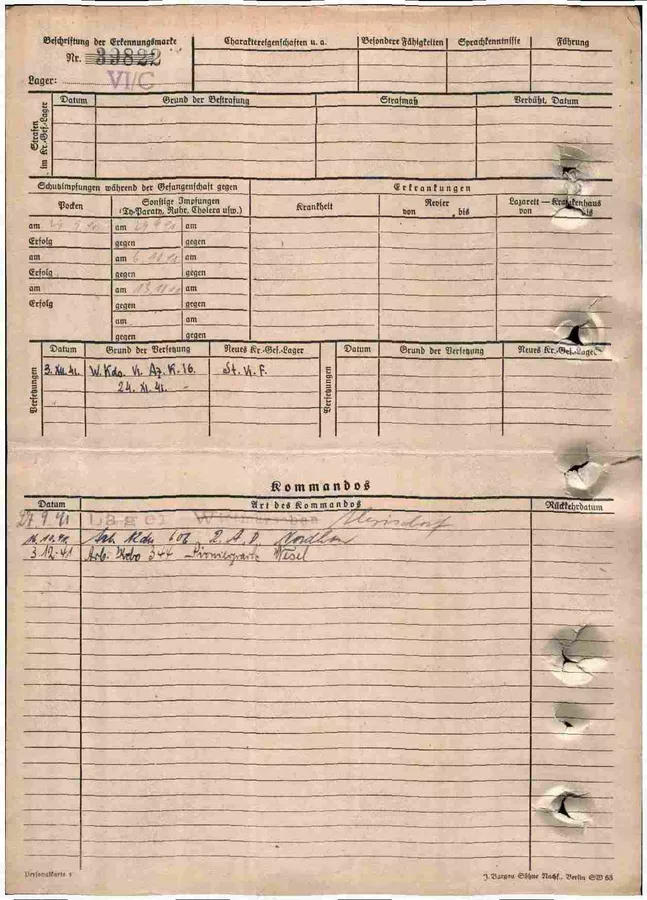 Beschriftung der Erkennungsmarke
Nr. 39822
Lager: VI/C
Charaktereigenschaften u. a.
Besondere Fähigkeiten
Sprachkenntnisse
Führung
Strafen im Kr.-Gef.-Lager
Datum
Grund der Bestrafung
Strafmaß
Verbüßt, Datum
Schutzimpfungen während der Gefangenschaft gegen
Erkrankungen
Pocken
Sonstige Impfungen
(Ty-Paraty, Ruhr, Cholera usw.)
Krankheit
Revier
von bis
Lazarett — Krankenhaus
von bis
am am am
Erfolg gegen gegen
am am am
Erfolg gegen gegen
am am am
Erfolg gegen gegen
am am
gegen gegen
Versetzungen
Datum Grund der Versetzung Neues Kr.-Gef.-Lager
3. XII. 41. W. Kdo. VI. Az. K. 16. St. VI. F.
24. XI. 41.
Versetzungen
Datum Grund der Versetzung Neues Kr.-Gef.-Lager
Kommandos
Datum Art des Kommandos Rückkehrdatum
27. 9. 41 Lager
Arb. Kdo 606
3.12.41 Arb. Kdo 344 Wesel
Personalkarte 1
J. Bargou Söhne Nachf., Berlin SW 68